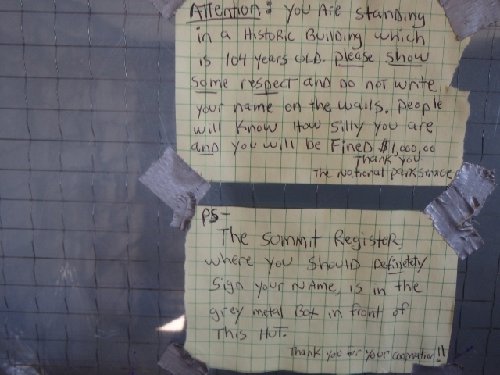 Attention: You Are standing
in a Historic Building which
is 104 years old. please show
some respect and do not write
your name on the walls. people
will know How silly you are
and you will be Fined $1,000.00
Thank you
The National park service
PS-
The Summit Register,
where you should definetely
sign your name, is in the
grey metal box in front of
This Hut.
Thank you for your cooperation!!